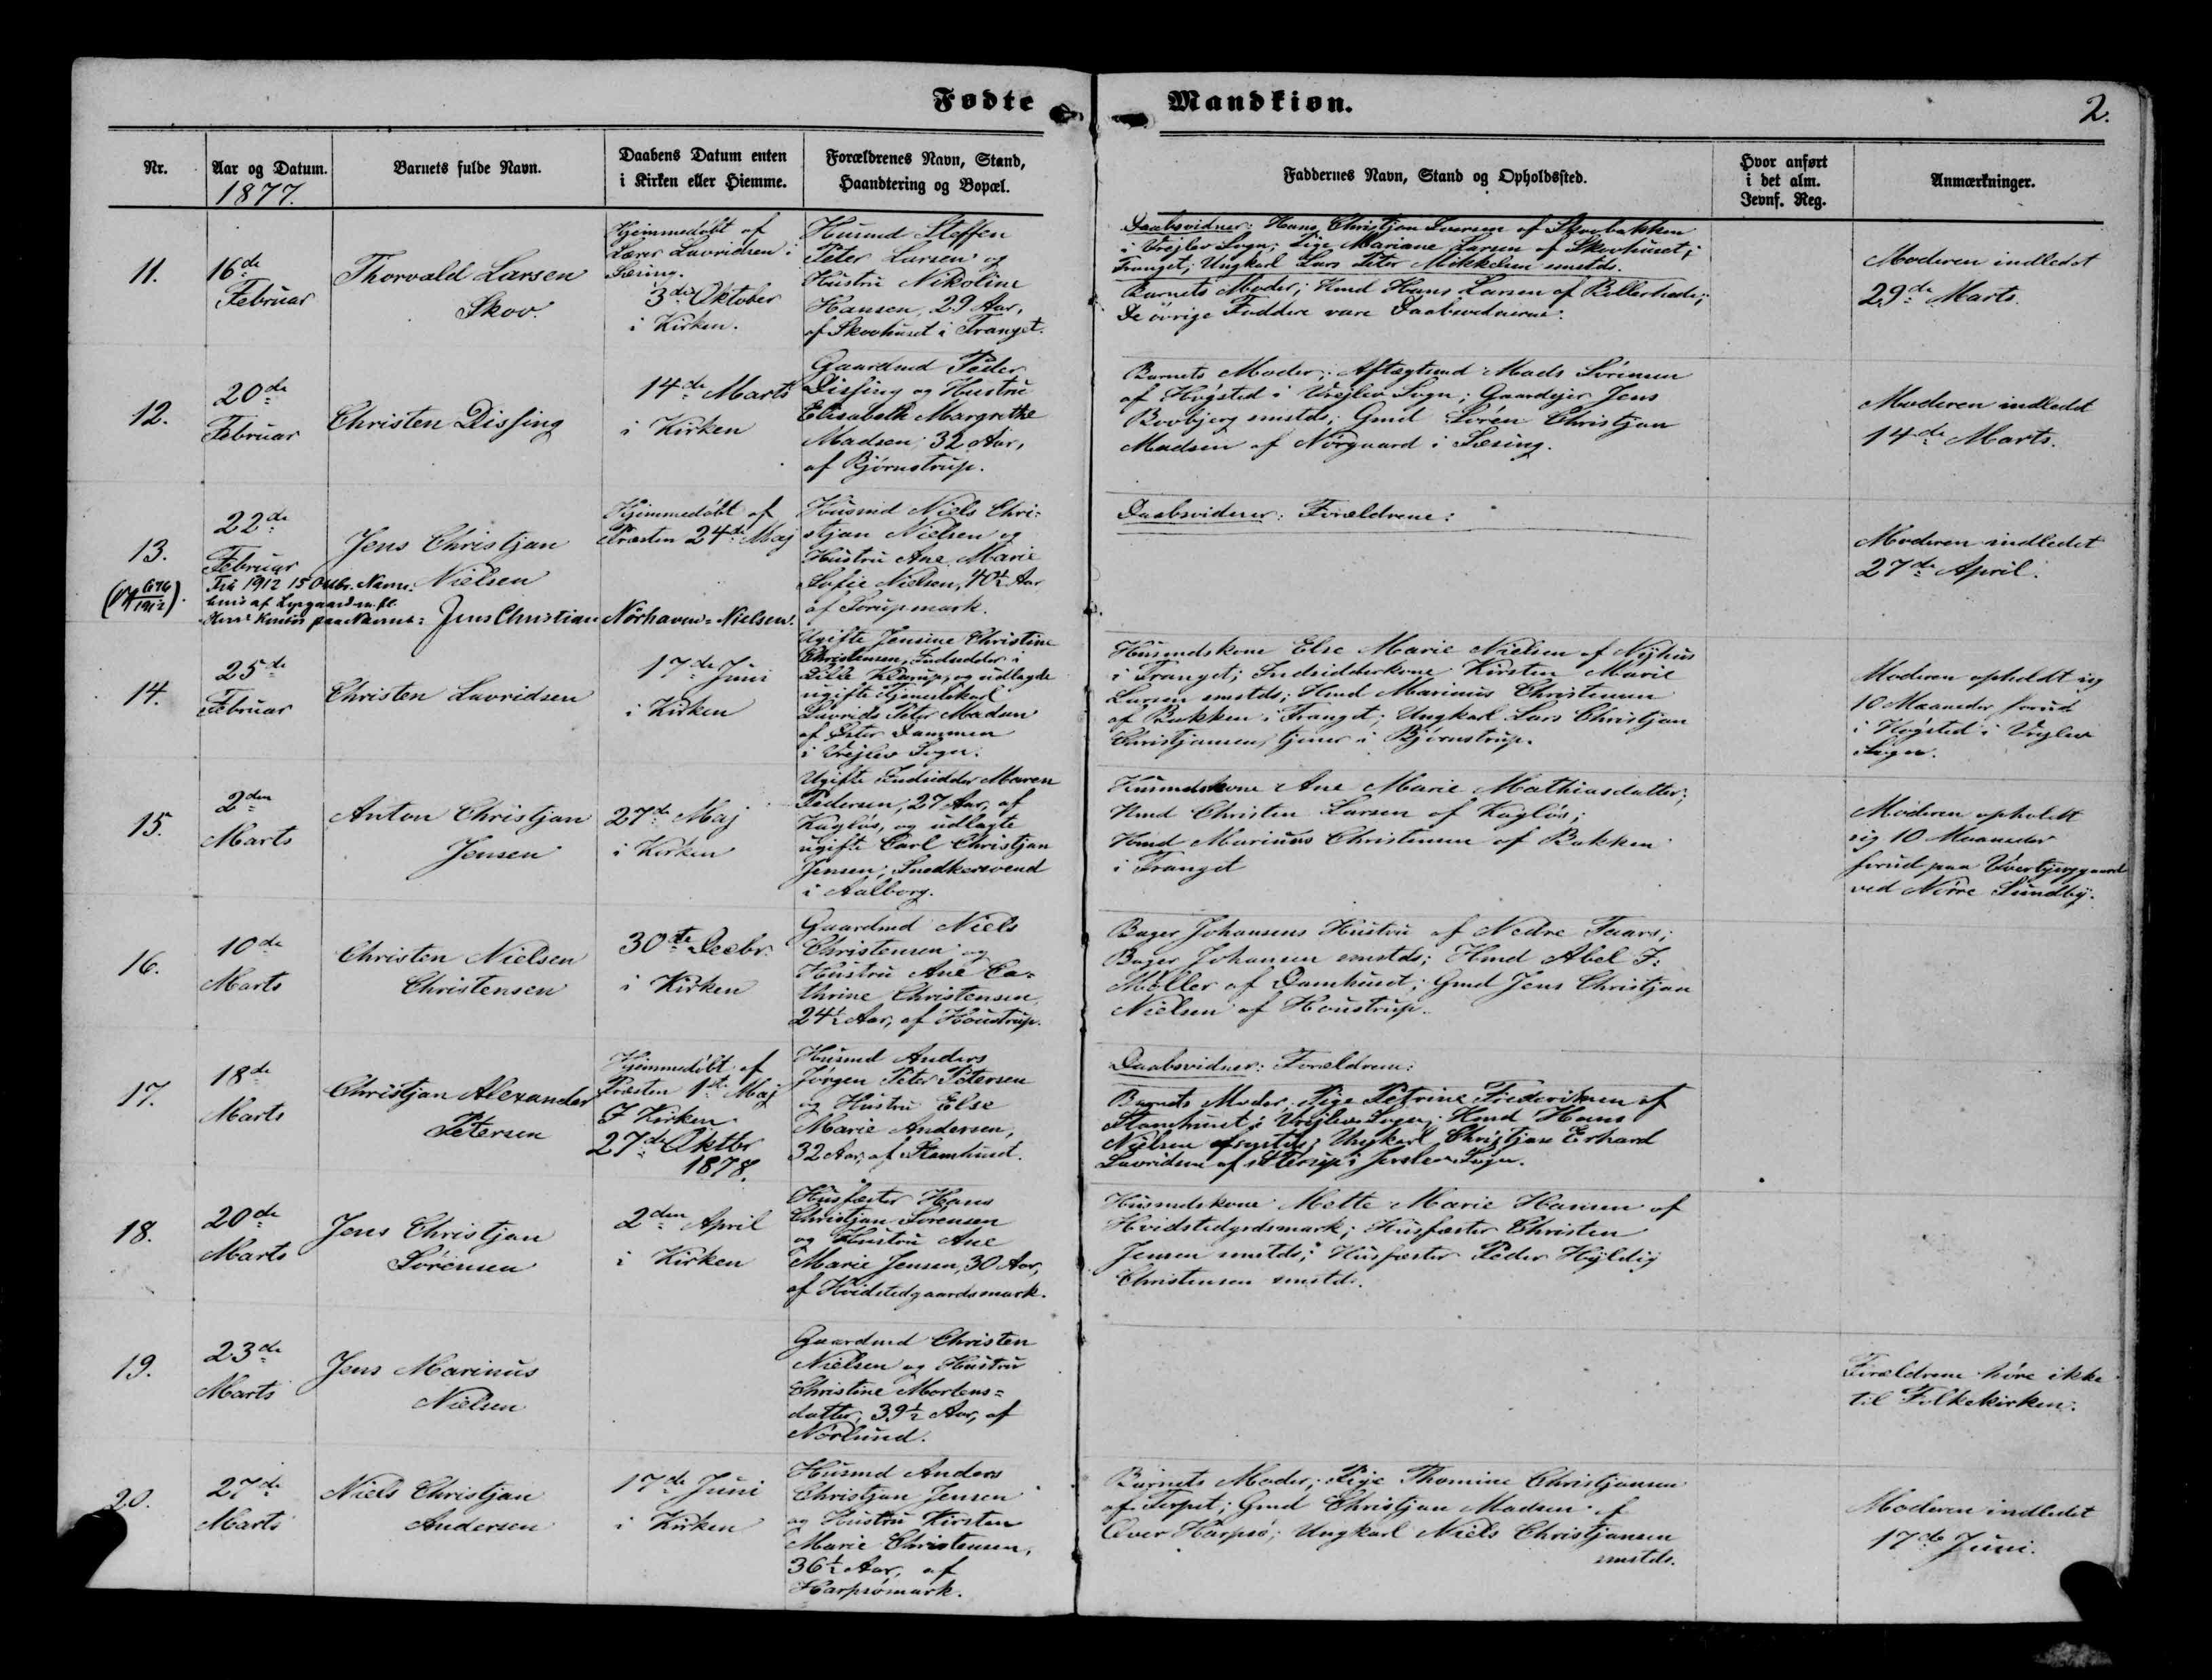 Fødte
Mandkiøn.
2.
Nr.
Aar og Datum.
1877.
Barnets fulde Navn.
Daabens Datum enten
i Kirken eller Hiemme.
Forældrenes Navn, Stand,
Haandtering og Bopæl.
Faddernes Navn, Stand og Opholdssted.
Hvor anført
i det alm.
Jevnf. Reg.
Anmærkninger.
11.
16de
Februar
Thorvald Larsen
Skov.
Hjemmedøbt af
Lærer Lavridsen i
Sæsing.
3de Oktober
i Kirken.
Husmd Steffen
Peter Larsen og
Hustru Nikoline
Hansen, 29 Aar,
af Skovhuset i Tranget.
Daabsvidner: Hans Christjan Iversen af Skovbakken
i Vrejlev Sogn; Pige Mariane Larsen af Skovhuset i
Tranget; Ungkarl Lars Peter Mikkelsen smstds.
Barnets Moder; Hmd Hans Larsen af
De øvrige Faddere vare Daabsvidnerne.
Moderen indledet
29de Marts.
12.
20de
Februar
Christen Dissing
14de Marts
i Kirken
Gaardmd Peder
Dissing og Hustru
Elisabeth Margrethe
Madsen, 32 Aar,
af Bjørnstrup.
Barnets Moder; Aftægtsmd Mads Sørensen
af Høgsted i Vrejlev Sogn; Gaardejer Jens
Bovbjerg smstds; Gmd Søren Christjan
Madsen af Nørgaard i Sæsing.
Moderen indledet
14de Marts.
13.
22de
Februar
Jens Christjan
Nielsen
Fra 1912 15 Oktbr. Navne-
bevis af
paa Navnet: Jens Christian Nørhaven-Nielsen.
Hjemmedøbt af
Præsten 24de Maj
Husmd Niels Chri-
stjan Nielsen og
Hustru Ane Marie
Sofie Nielsen, 40½ Aar
af Sorupmark.
Daabsvidner: Forældrene:
Moderen indledet
27de April.
14.
25de
Februar
Christen Lavridsen
17de Juni
i Kirken
Ugifte Jensine Christine
Christensen, Indsidder i
Lille Klarup, og udlagde
ugifte Tjenestekarl
Lavrids Peter Madsen
af Øster Dammen
i Vrejlev Sogn.
Husmdskone Else Marie Nielsen af Nyhus
i Tranget; Indsidderkone Kirsten Marie
Larsen smstds; Hmd Marinus Christensen
af Bakken i Tranget; Ungkarl Lars Christjan
Christjansen, tjener i Bjørnstrup.
Moderen opholdt sig
10 Maaneder forud
i Høgsted i Vrejlev
Sogn.
15.
2den
Marts
Anton Christjan
Jensen
27de Maj
i Kirken
Ugifte Indsidder Maren
Pedersen, 27 Aar, af
Kagløs, og udlagte
ugifte Carl Christjan
Jensen, Snedkersvend
i Aalborg.
Husmdskone Ane Marie Mathiasdatter;
Hmd Christen Larsen af Kagløs;
Hmd Marinus Christensen af Bakken
i Tranget
Moderen opholdt
sig 10 Maaneder
forud paa
ved Nørre Sundby.
16.
10de
Marts
Christen Nielsen
Christensen
30te Decbr.
i Kirken
Gaardmd Niels
Christensen og
Hustru Ane Ca-
thrine Christensen
24½ Aar, af Houstrup.
Bager Johansens Hustru af Nedre Taars;
Bager Johansen smstds; Hmd Abel F.
Møller af Damhuset; Gmd Jens Christjan
Nielsen af Houstrup.
17.
18de
Marts
Christjan Alexander
Petersen
Hjemmedøbt af
Præsten 1ste Maj
I Kirken
27de Oktbr
1878.
Husmd Anders
Jørgen Peter Petersen
og Hustru Else
Marie Andersen,
32 Aar, af Stamhuset.
Daabsvidner: Forældrene:
Barnets Moder; Pige Petrine Frederiksen af
Stamhuset i Vrejlev Sogn; Hmd Hans
Nielsen smstds; Ungkarl Christjan Erhard
Lavridsen af Sterup i Jerslev Sogn.
18.
20de
Marts
Jens Christjan
Sørensen
2den April
i Kirken
Husfæster Hans
Christjan Sørensen
og Hustru Ane
Marie Jensen, 30 Aar,
af Hvidstedgaardsmark.
Husmdskone Mette Marie Hansen af
Hvidstedgrdsmark; Husfæster Christen
Jensen smstds; Husfæster Peder Hyldig
Christensen smstds.
19.
23de
Marts
Jens Marinus
Nielsen
Gaardmd Christen
Nielsen og Hustru
Christine Mortens-
datter, 39½ Aar, af
Nørlund.
Forældrene høre ikke
til Folkekirken.
20.
27de
Marts
Niels Christjan
Andersen
17de Juni
i Kirken
Husmd Anders
Christjan Jensen
og Hustru Kirsten
Marie Christensen,
36½ Aar, af
Harpsømark.
Barnets Moder; Pige Thomine Christjansen
af Terpet; Gmd Christjan Madsen af
Over Harpsø; Ungkarl Niels Christjansen
smstds.
Moderen indledet
17de Juni.